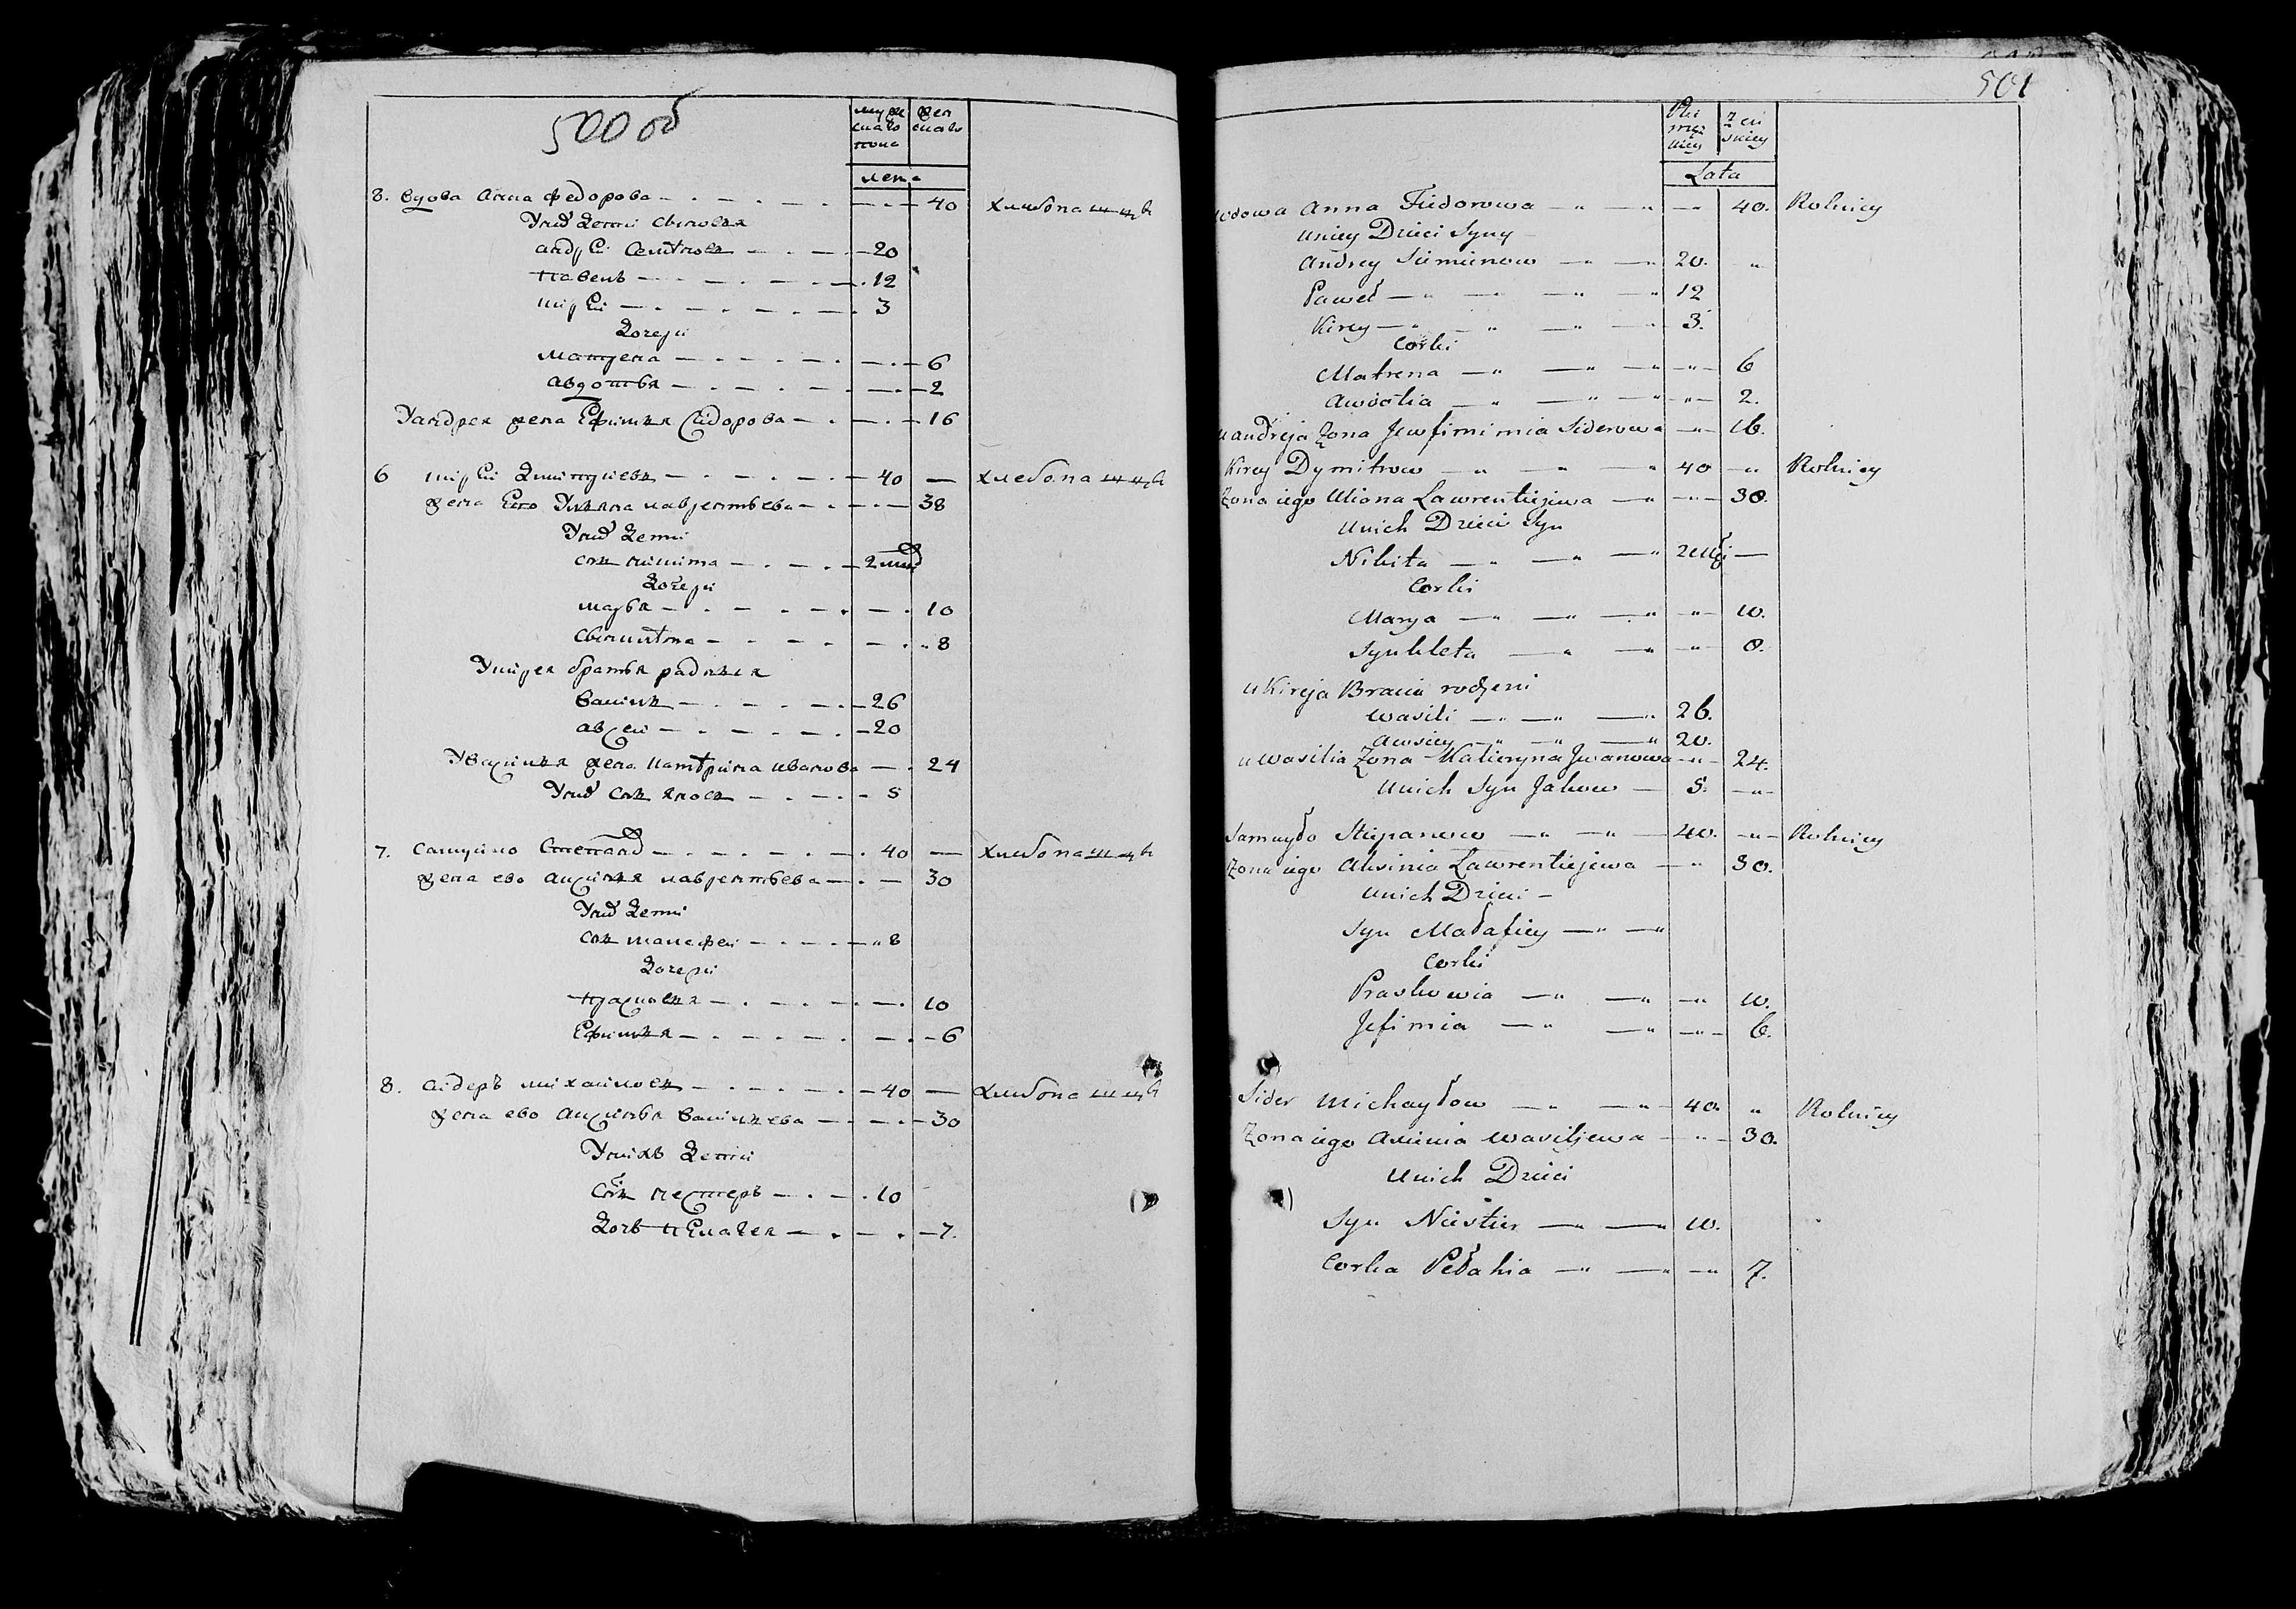 500 об
муже
скаго
пола
жен
скаго
лета
8. вдова анна федорова 40 хлебопашцы
У ней дети сыновья
андрей семенов 20
павелъ 12
кирей 3
дочери
матрена 6
авдотья 2
У андрея жена Ефимья Сидорова 16
6 кирей димитриевъ 40 хлебопашцы
жена Его Ульяна лаврентьева 38
У них дети
сын никита 2 нед
дочери
марья 10
8
У кирея братья родныя
василий 26
авсей 20
У василья жена катерина иванова 24
У них сын яков 5
7. самуйло Степанов 40 хлебопашцы
жена ево аксинья лаврентьева 30
У них дети
сын малафей 8
дочери
прасковья 10
Ефимья 6
8. сидеръ михайлов 40 хлебопашцы
жена ево аксинья васильева 30
У нихъ дети
сын нестеръ 10
дочь пелагея 7.
501
Plci
męz
kiey
żen
skiey
Lata
wdowa Anna Fiedorowa 40. Rolnicy
u niey Dzieci Syny
Andrey Siemienow 20.
Paweł 12
Kirey 3.
Corki
Matrena 6
Awdotia 2.
u andreja Żona Jewfimimia Siderowa 16.
Kirey Dymitrow 40 Rolnicy
Żona iego Uliana Lawrentiejewa 38.
u nich Dzieci Syn
Nikita
Corki
Marya 10.
Synkleta 8.
u Kireja Bracia rodzeni
Wasili 26.
Awsiey 20.
u Wasilia Żona Katieryna Jwanowa 24.
u nich Syn Jakow 5.
Samuyło Stiepanow 40. Rolnicy
Żona iego Aksinia Lawrentiejewa 30.
u nich Dzieci
Syn Małafiey
Corki
Praskowia 10.
Jefimia 6.
Sider Michayłow 40. Rolnicy
Żona iego Axinia Wasiljewa 30.
u nich Dzieci
Syn Niestier 10.
Corka Pełahia 7.